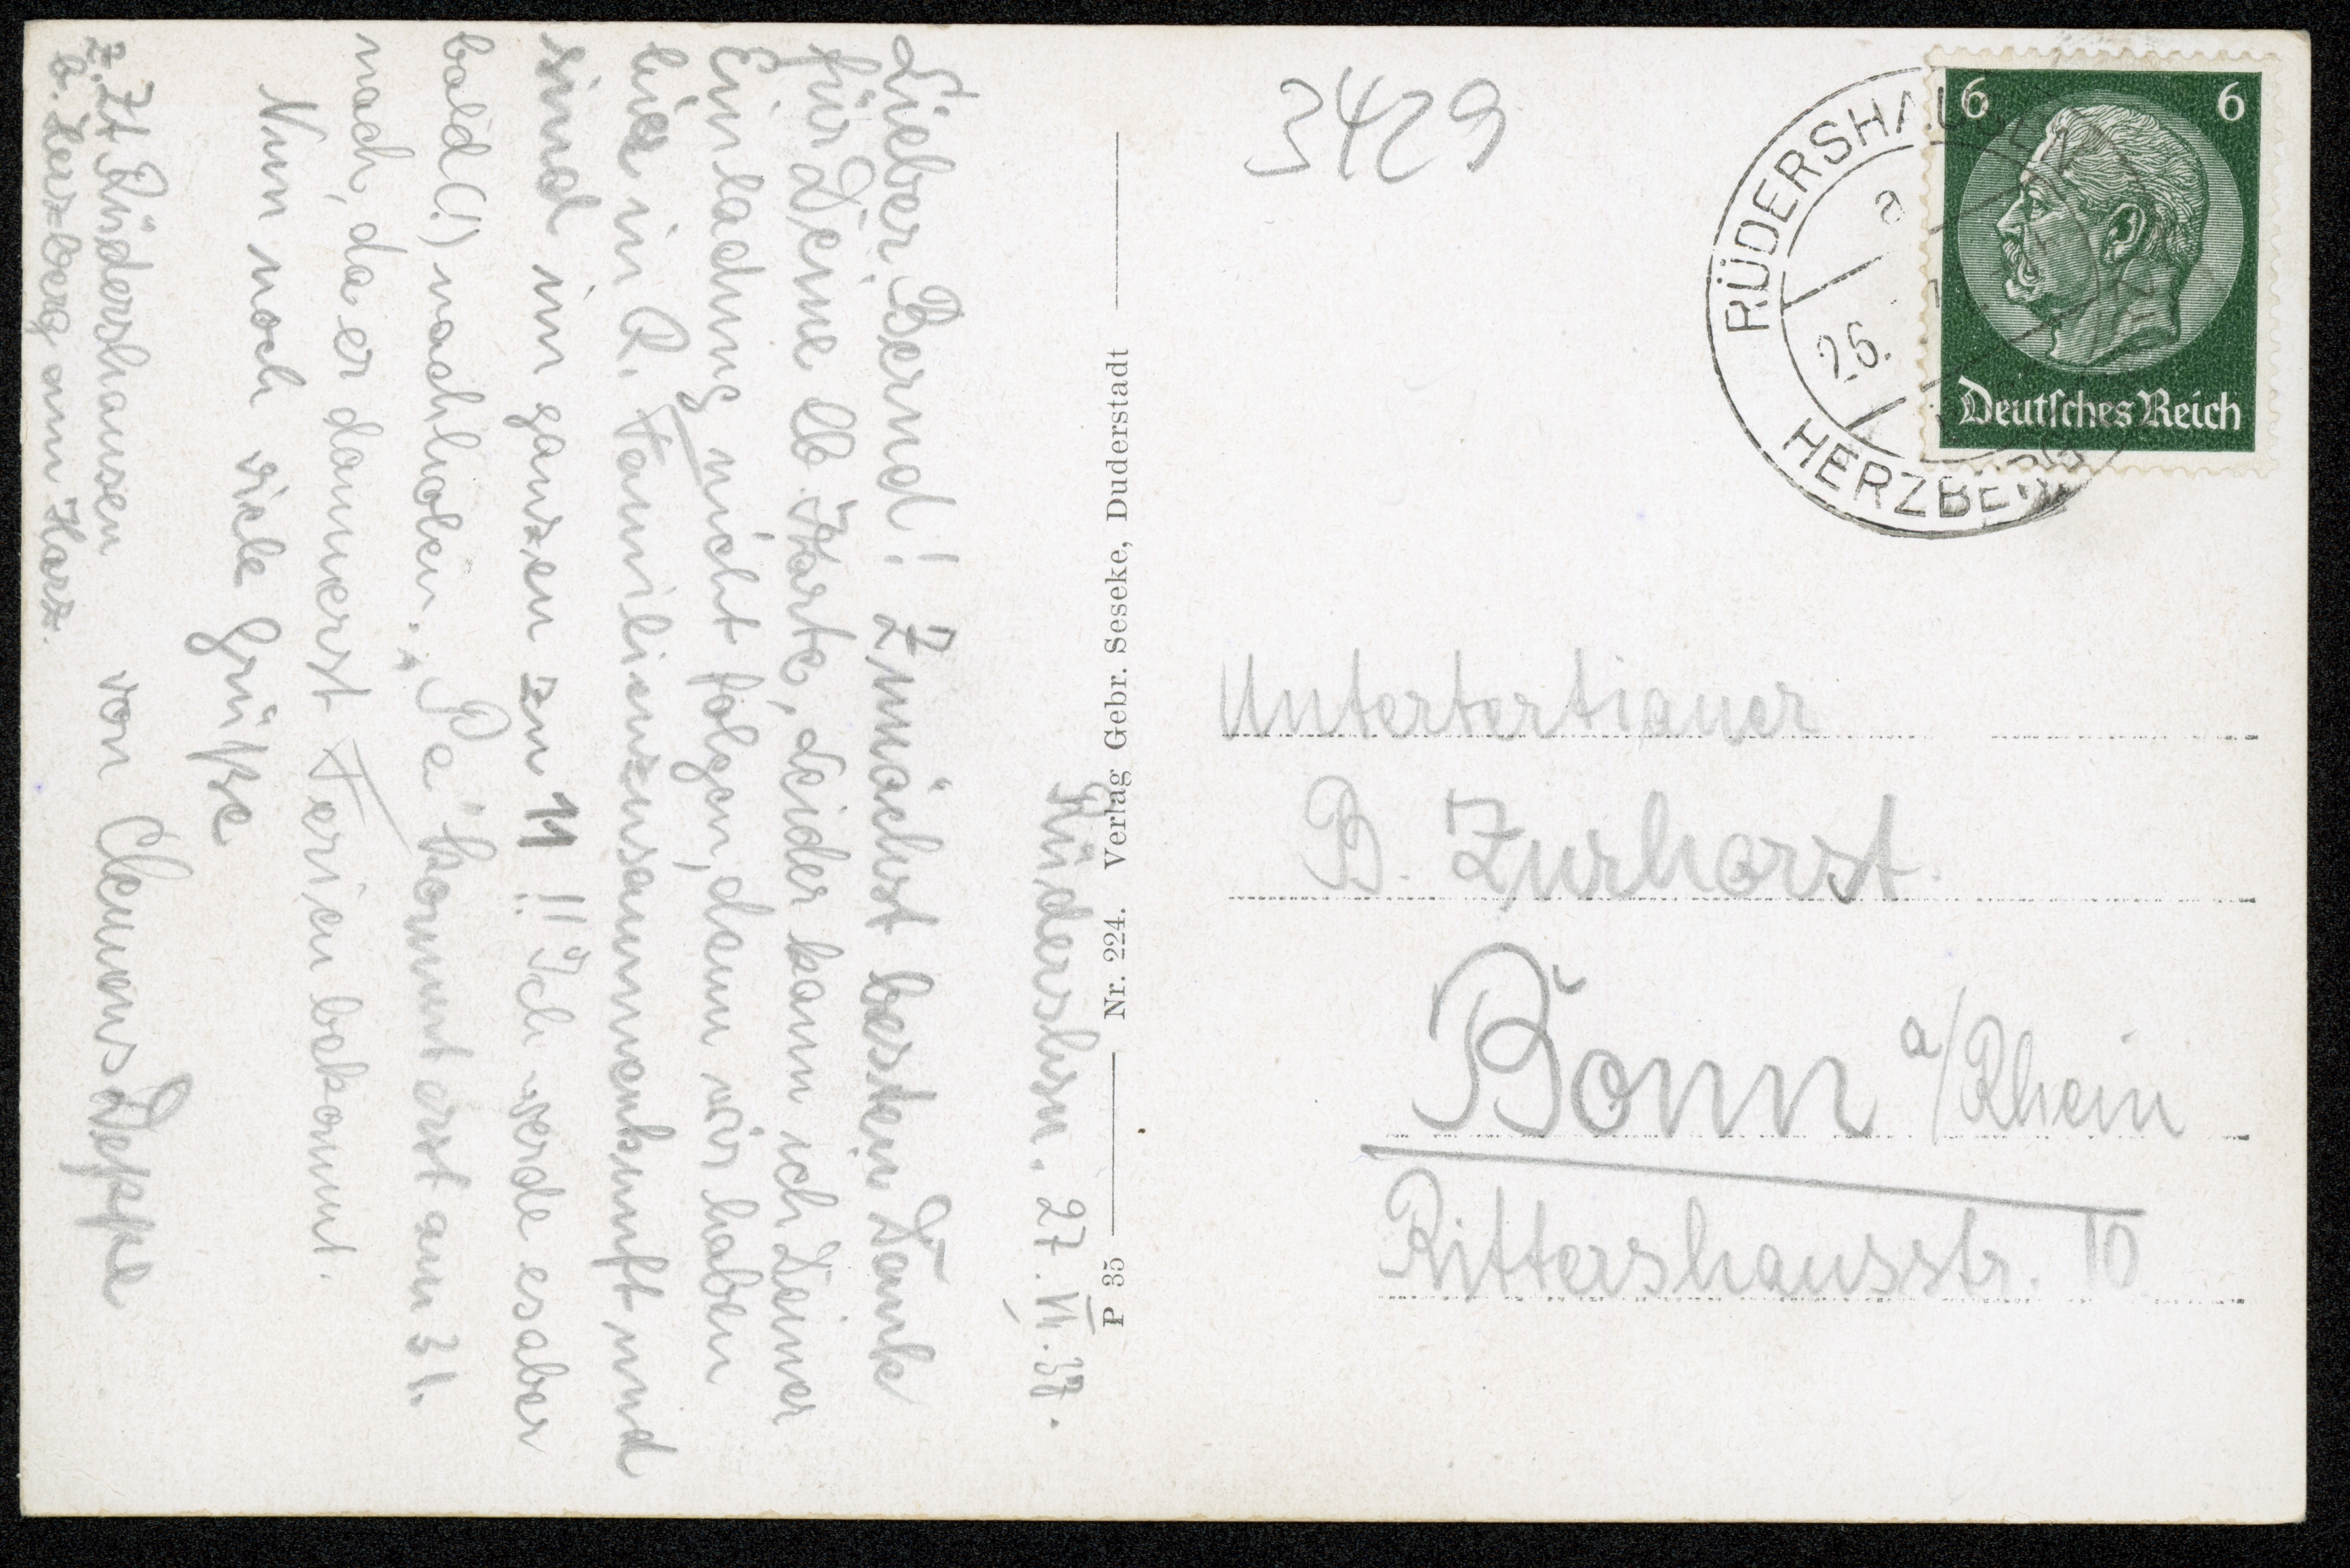 Rüdershsn. 27. VII. 37.
Lieber Bernd! Zunächst besten Dank
für Deine lb. Karte, leider kann ich Deiner
Einladung nicht folgen, denn wir haben
hier in R. Familienzusammenkunft und
sind im ganzen zu 11!! Ich werde es aber
bald (!) nachholen. „Pa“ kommt erst am 31.
nach, da er dann erst Ferien bekommt.
Nun noch viele Grüße
von Clemens Deppe
z. Zt Rüdershausen
b. Herzberg am Harz.
P 35 Nr. 224. Verlag Gebr. Seseke, Duderstadt
3429
RÜDERSHAUSEN
a
26.
HERZBERG
6 6
Deutsches Reich
Untertertianer
B. Zurhorst.
Bonn a/Rhein
Rittershausstr. 10